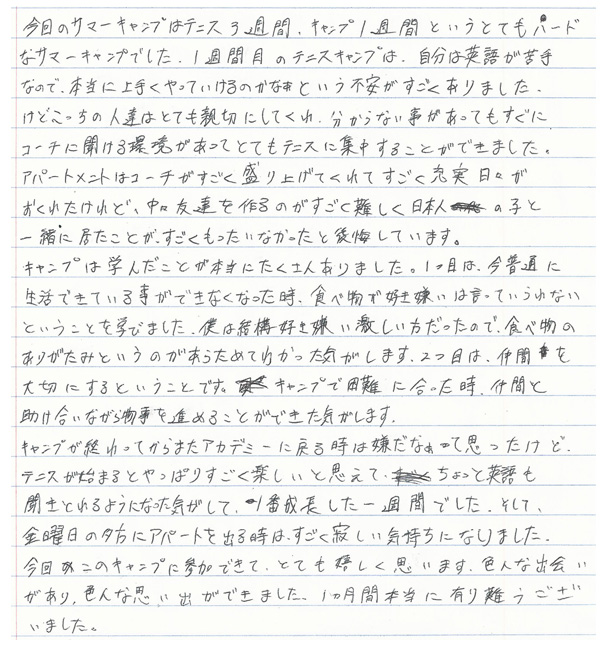 今回のサマーキャンプはテニス3週間、キャンプ1週間というとてもハード
なサマーキャンプでした。1週間目のテニスキャンプは、自分は英語が苦手
なので、本当に上手くやっていけるのかなぁという不安がすごくありました。
けどこっちの人達はとても親切にしてくれ、分からない事があってもすぐに
コーチに聞ける環境があってとてもテニスに集中することができました。
アパートメントはコーチがすごく盛り上げてくれてすごく充実日々が
おくれたけれど、中々友達を作るのがすごく難しく日本人の子と
一緒に居たことが、すごくもったいなかったと後悔しています。
キャンプは学んだことが本当にたくさんありました。1つ目は、今普通に
生活できている事ができなくなった時、食べ物が好き嫌いは言っていられない
ということを学びました。僕は結構好き嫌い激しい方だったので、食べ物の
ありがたみというのがあらためてわかった気がします。2つ目は、仲間を
大切にするということです。キャンプで困難に合った時、仲間と
助け合いながら物事を進めることができた気がします。
キャンプが終わってからまたアカデミーに戻る時は嫌だなぁって思ったけど、
テニスが始まるとやっぱりすごく楽しいと思えて、ちょっと英語も
聞きとれるようになった気がして、1番成長した一週間でした。そして、
金曜日の夕方にアパートを出る時は、すごく寂しい気持ちになりました。
今回このキャンプに参加できて、とても嬉しく思います。色んな出会い
があり、色んな思い出ができました。1ヵ月間本当に有り難うござ
いました。